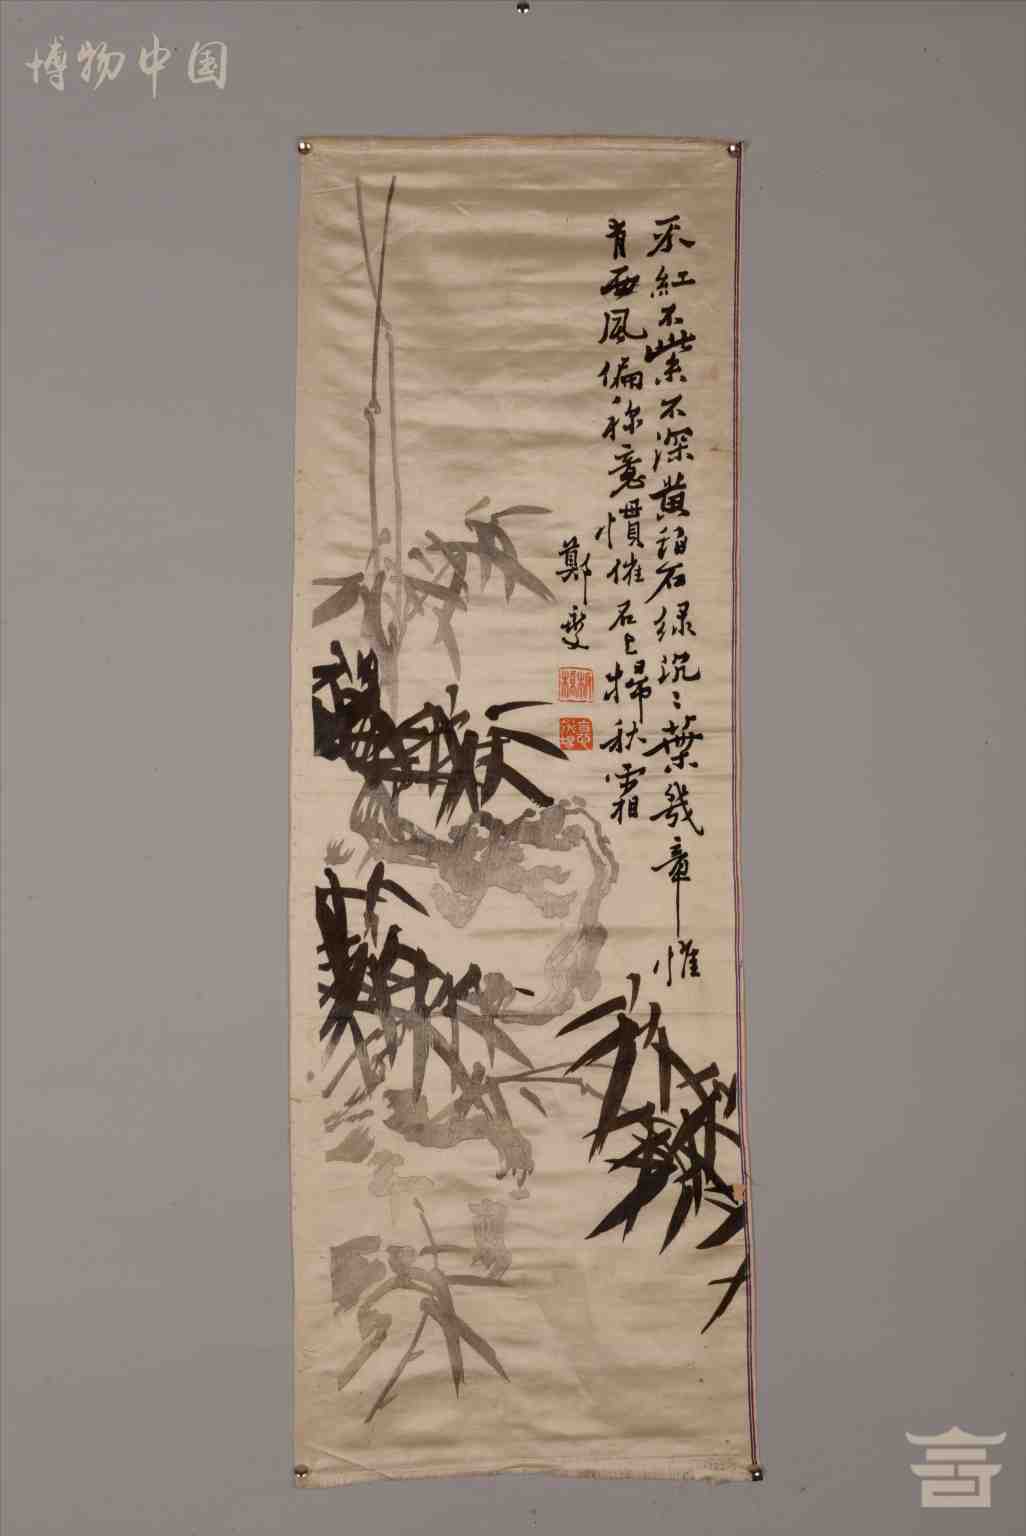 博物中国
不紅不紫不深黄 石绿沉〻葉幾章 惟
肯西風偏称意慣催石上掃秋霜
鄭燮